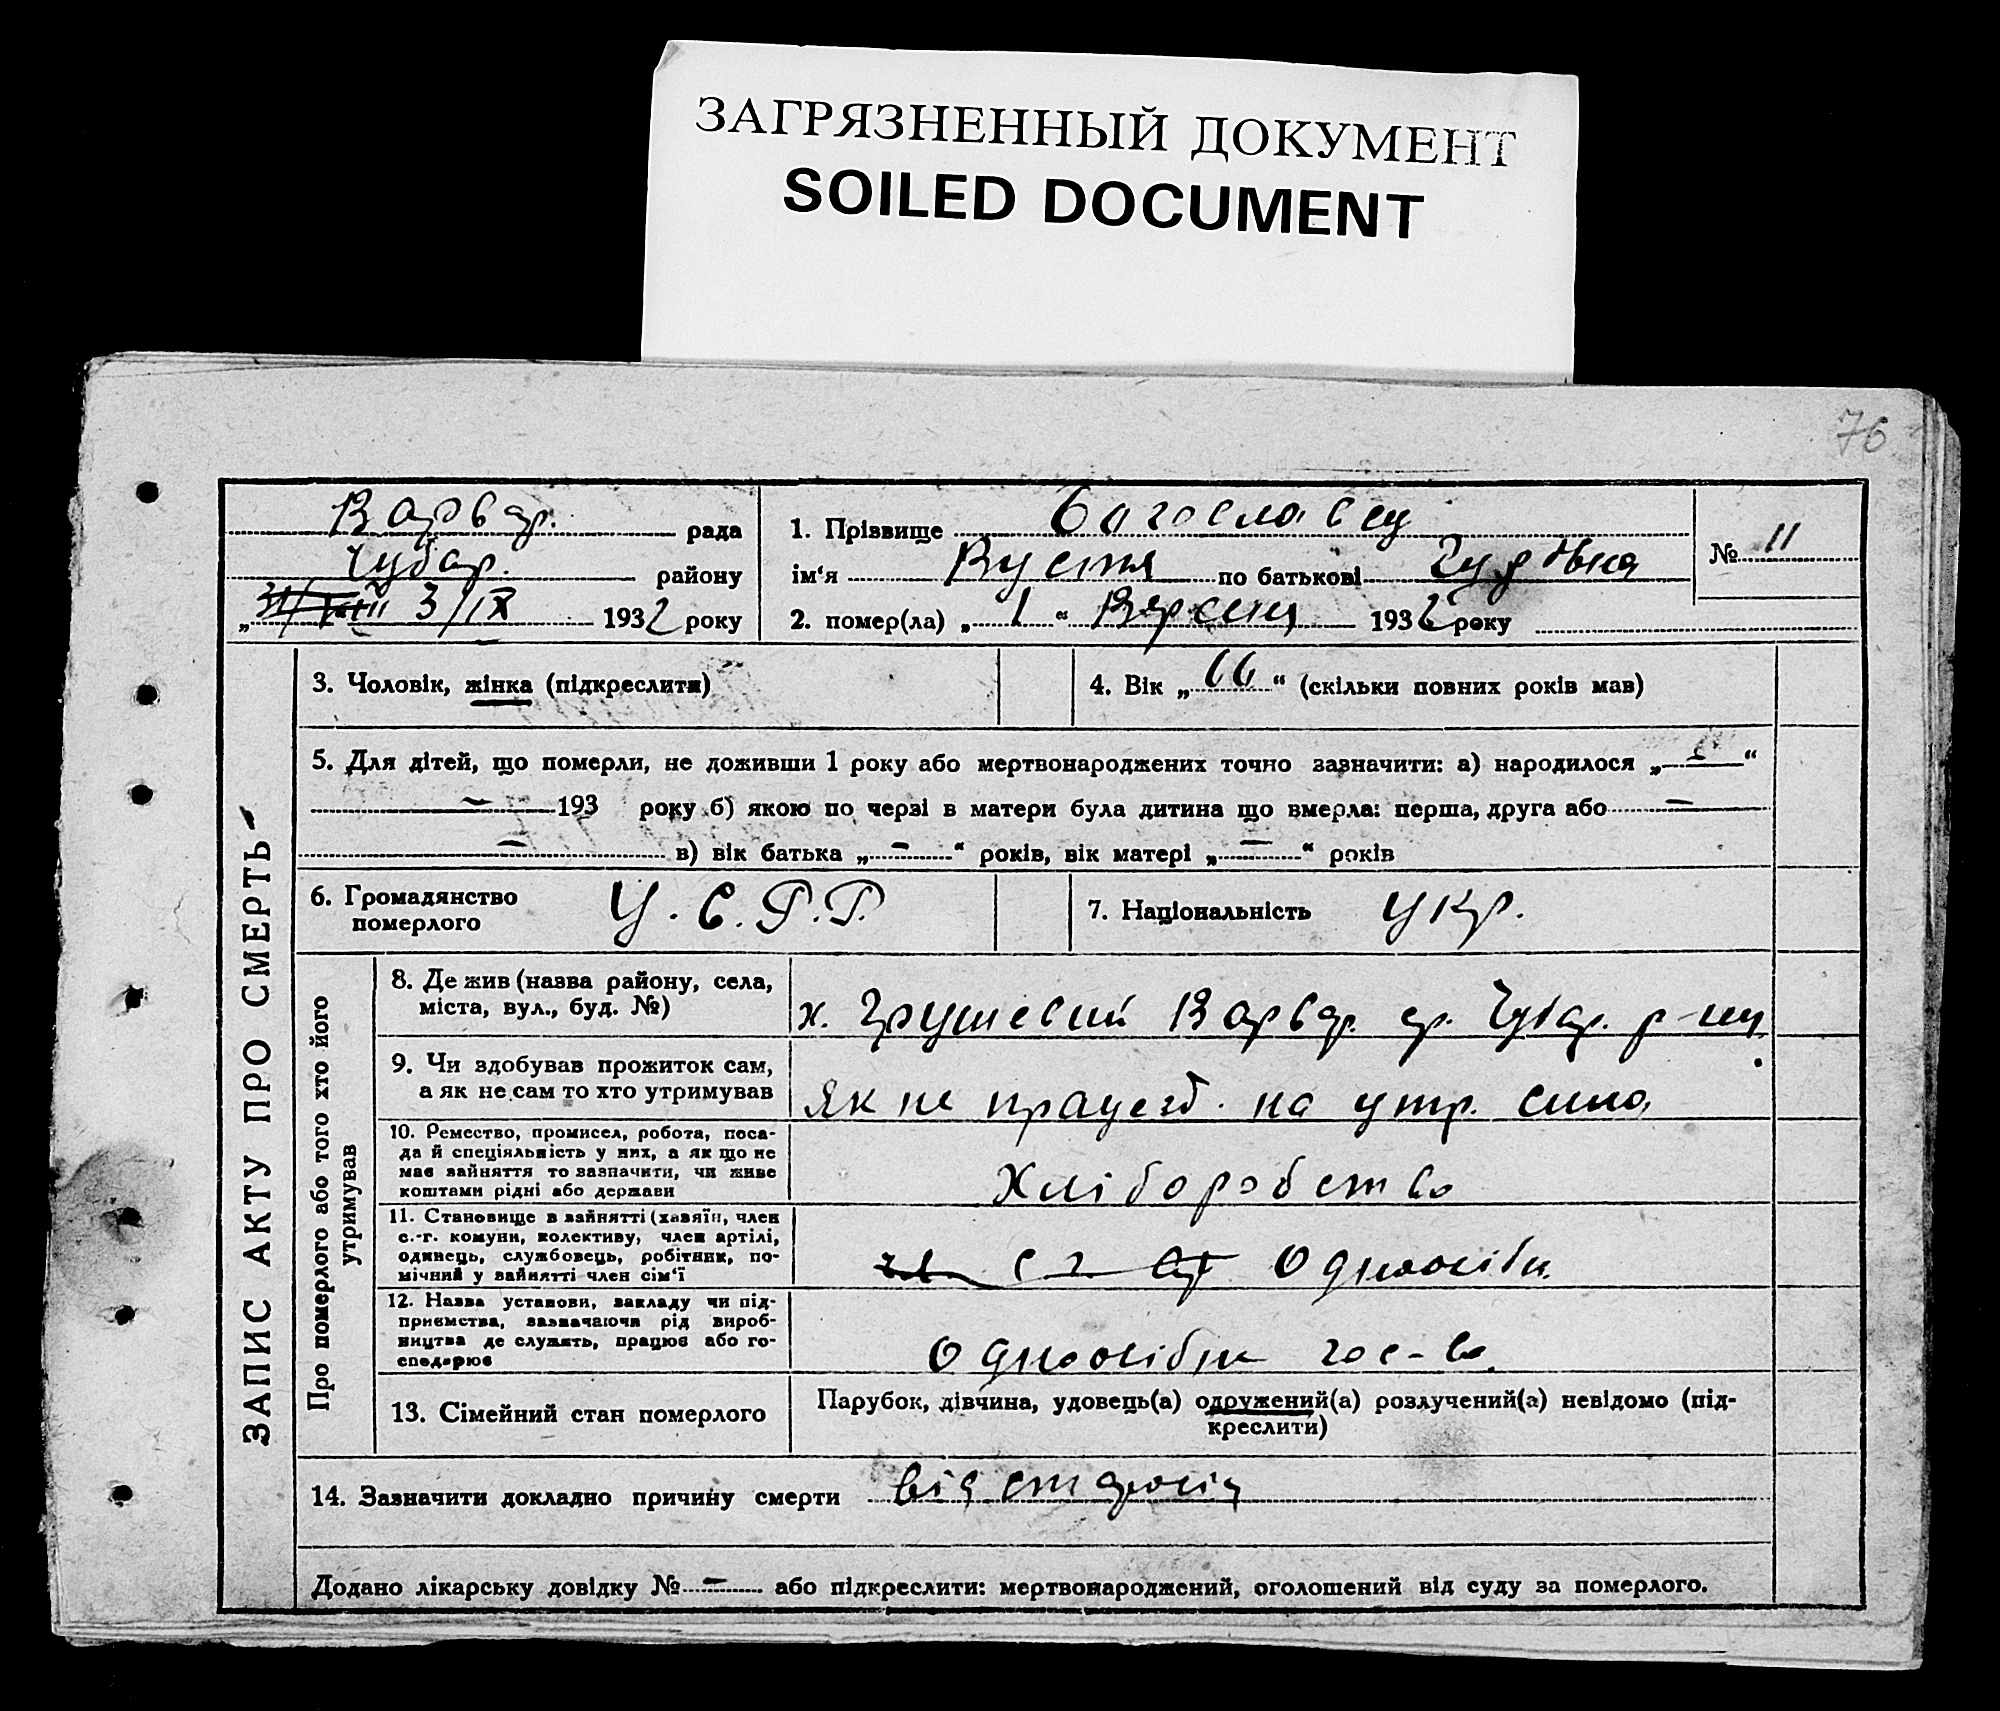 ЗАГРЯЗНЕННЫЙ ДОКУМЕНТ
SOILED DOCUMENT
76
Варвар. рада
Чубар. району
„31/VIII 3/IX 1932 року
1. Прізвище
ім‘я Вустя по батькові
2. помер(ла) „1“ Вересня 1932 року
№ 11
ЗАПИС АКТУ ПРО СМЕРТЬ
3. Чоловік, жінка (підкреслити)
4. Вік „66“ (скільки повних років мав)
5. Для дітей, що померли, не доживши 1 року або мертвонароджених точно зазначити: а) народилося „—“
— 193 року б) якою по черзі в матери була дитина що вмерла: перша, друга або —
— в) вік батька „—“ років, вік матері „—“ років
6. Громадянство
померлого
У.С.Р.Р.
7. Національність Укр.
Про померлого або того хто його
утримував
8. Де жив (назва району, села,
міста, вул., буд. №)
х. Грушевий Варвар. ср. Чубар. р-ну
9. Чи здобував прожиток сам,
а як не сам то хто утримував
Як не працезд. на утр. сина
10. Ремество, промисел, робота, поса-
да й спеціяльність у них, а як що не
має зайняття то зазначити, чи живе
коштами рідні або держави
Хліборобство
11. Становище в зайнятті (хазяїн, член
с.-г. комуни, колективу, член артілі,
одинець, службовець, робітник, по-
мічний у зайнятті член сім‘ї
чл с г ар Одноосібн.
12. Назва установи, закладу чи під-
приємства, зазначаючи рід вироб-
ництва де служить, працює або го-
сподарює
Одноосібне гос-во.
13. Сімейний стан померлого
Парубок, дівчина, удовець(а) одружений(а) розлучений(а) невідомо (під-
креслити)
14. Зазначити докладно причину смерти від старости
Додано лікарську довідку № — або підкреслити: мертвонароджений, оголошений від суду за померлого.